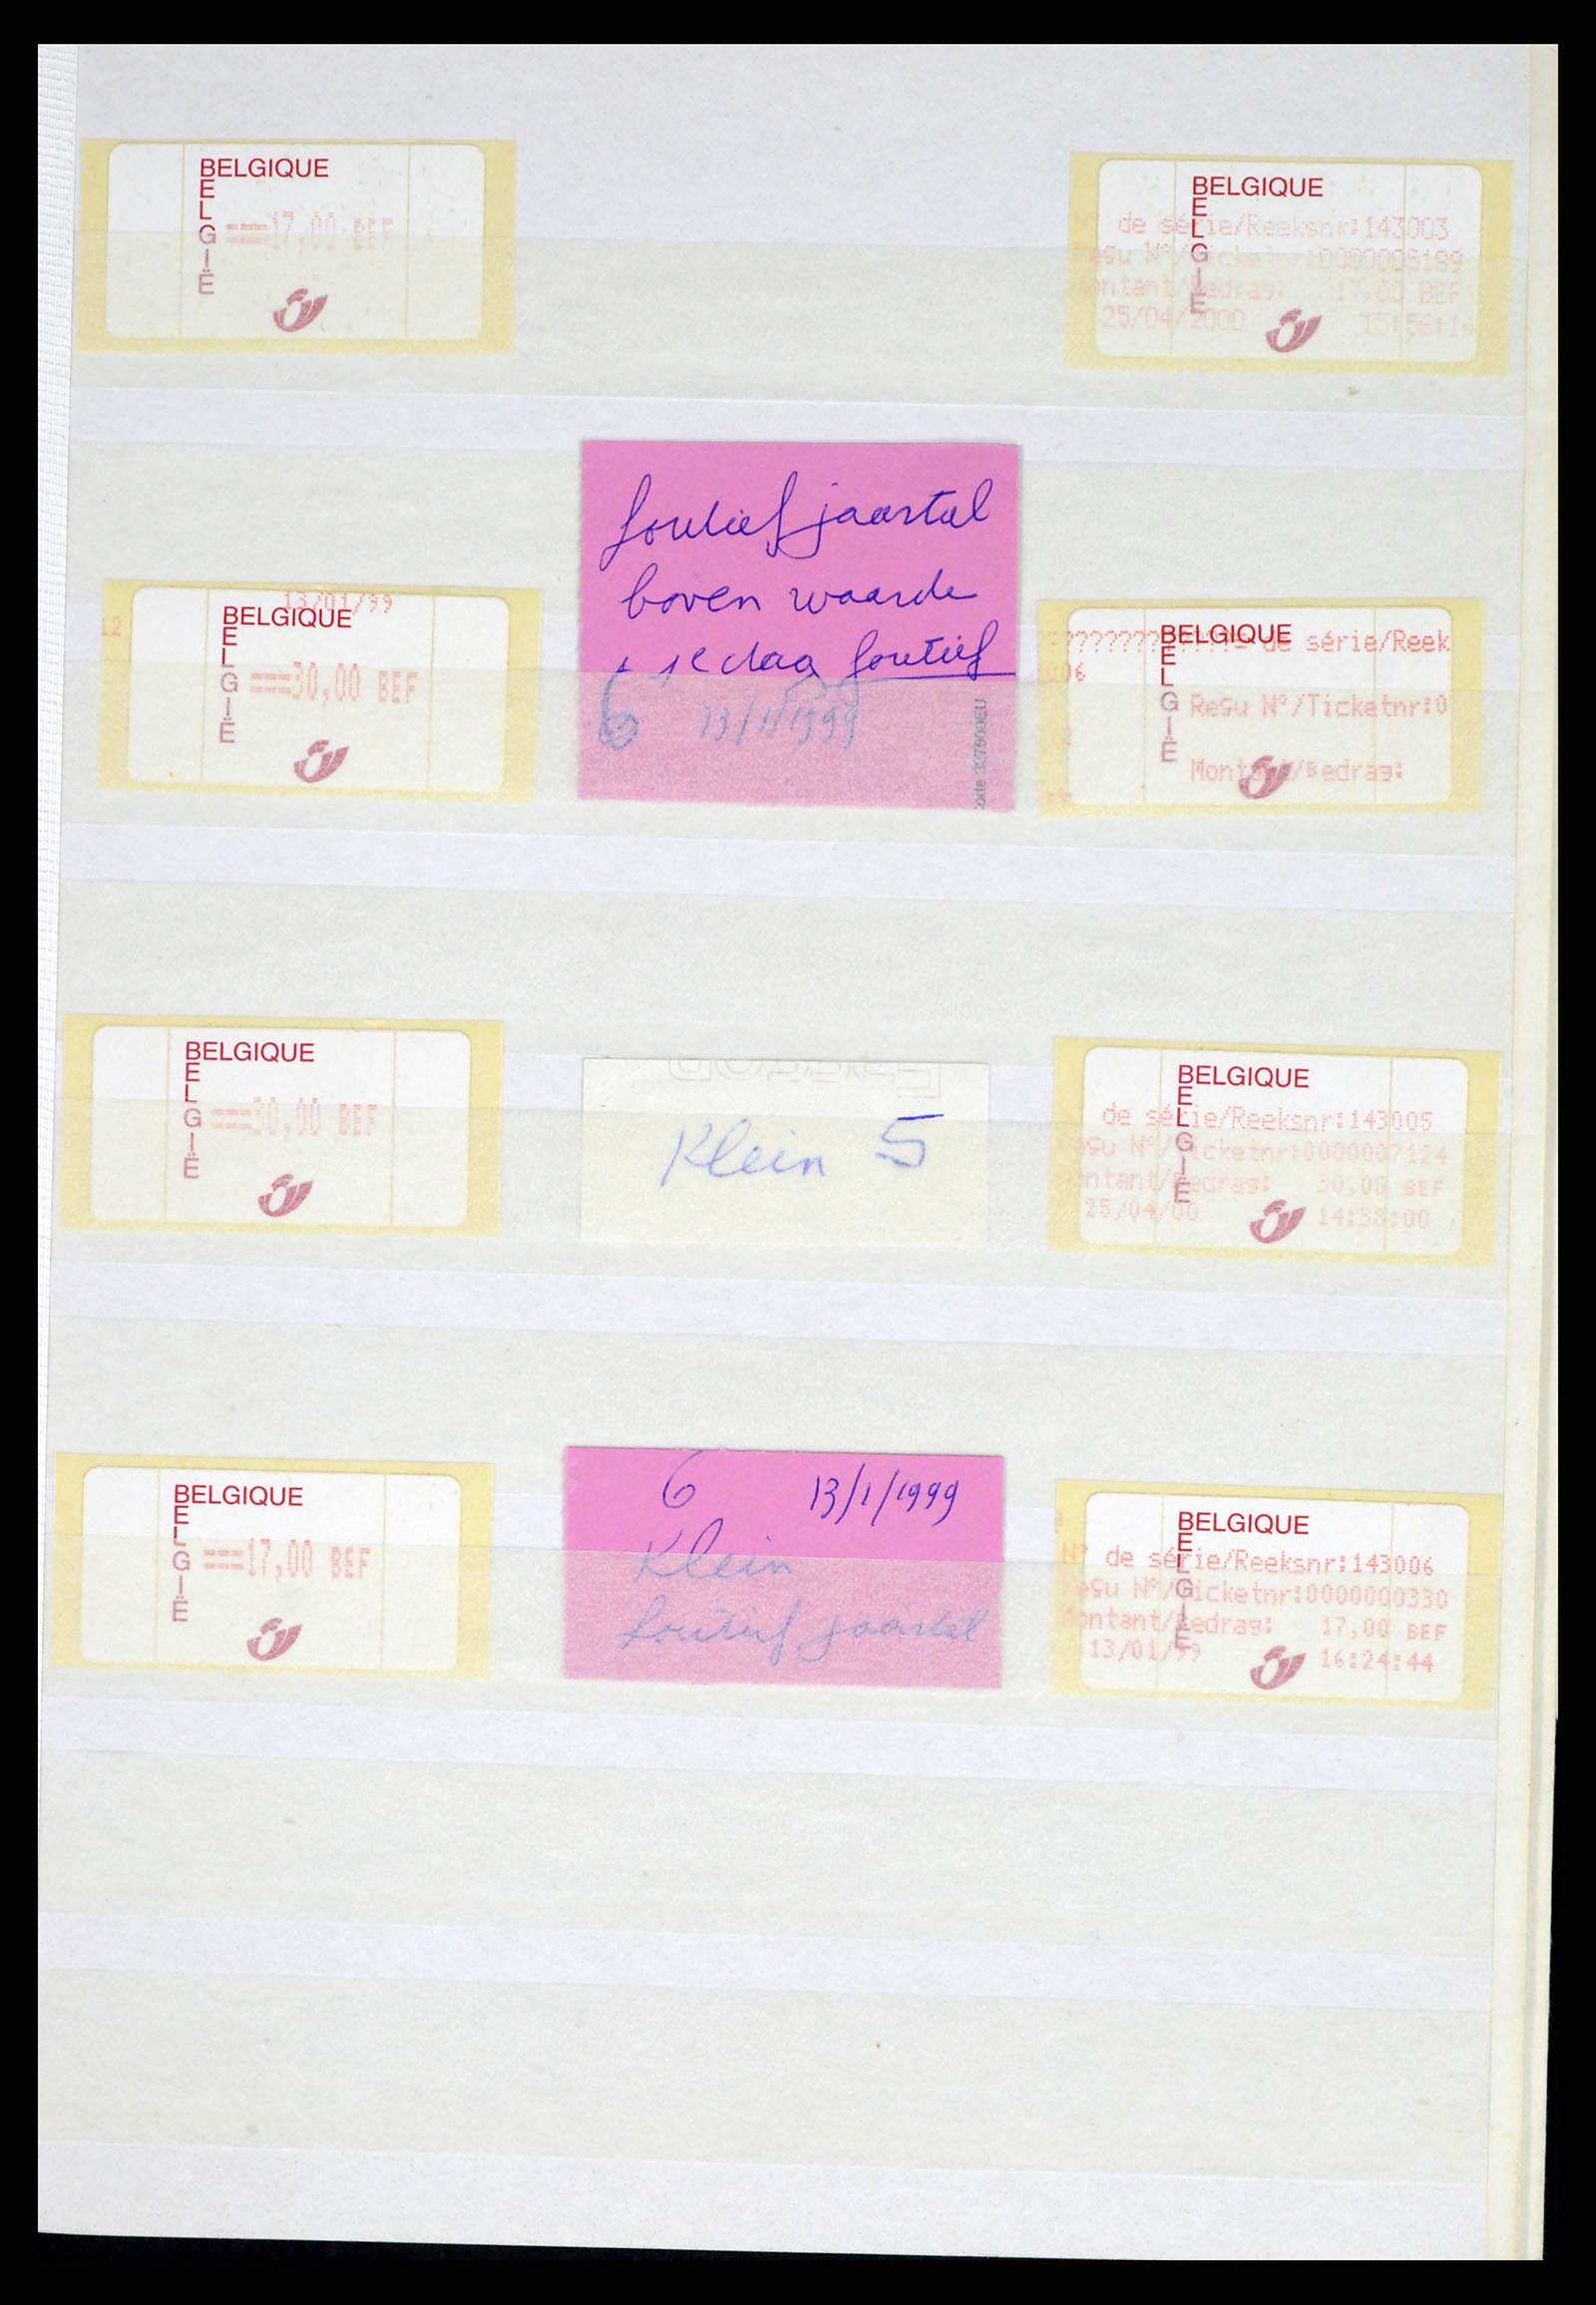 BELGIQUE
BELGIË
===17,00 BEF
BELGIQUE
BELGIË
N° de série/Reeksnr:143003
Reçu N°/Ticketnr:0000005189
Montant/Bedrag: 17,00 BEF
25/04/2000 15:56:14
foutief jaartal
boven waarde
1e dag foutief
6 13/1/1999
13/01/99
BELGIQUE
BELGIË
12
===30,00 BEF
BELGIQUE
BELGIË
??????????????= de série/Reek
006
Reçu N°/Ticketnr:0
Montant/Bedrag:
BELGIQUE
BELGIË
===30,00 BEF
Klein 5
BELGIQUE
BELGIË
de série/Reeksnr:143005
eçu N°/Ticketnr:0000007124
ontant/Bedrag: 30,00 BEF
25/04/00 14:38:00
BELGIQUE
BELGIË
===17,00 BEF
6 13/1/1999
Klein
foutief jaartal
BELGIQUE
BELGIË
N° de série/Reeksnr:143006
Reçu N°/Ticketnr:0000000330
Montant/Bedrag: 17,00 BEF
13/01/99 16:24:44